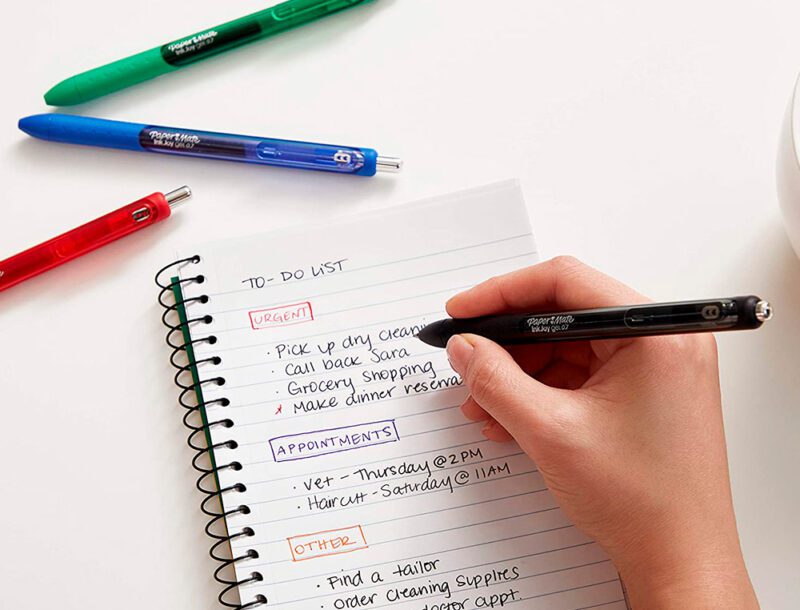 Paper Mate
InkJoy gel 0.7
Paper Mate
InkJoy gel 0.7
TO-DO LIST
URGENT
· Pick up dry cleani
· Call back Sara
· Grocery shopping
* Make dinner reserva
Paper Mate
InkJoy gel 0.7
APPOINTMENTS
· Vet - Thursday @ 2PM
· Haircut - Saturday @ 11AM
OTHER
· Find a tailor
· Order cleaning supplies
appt.